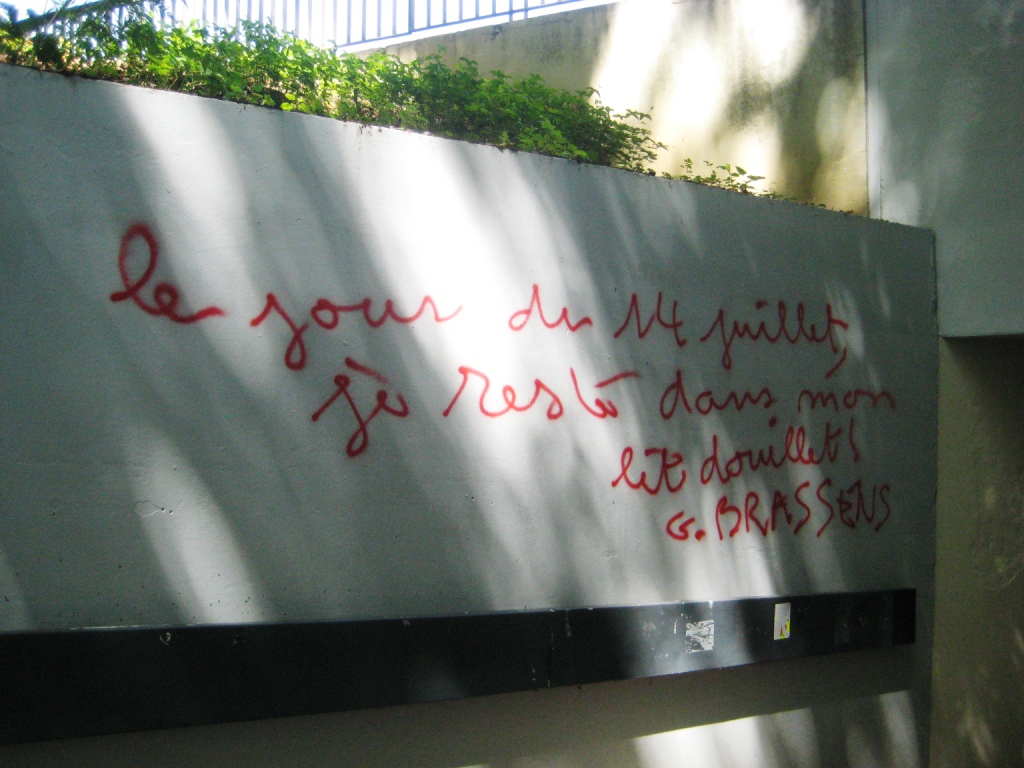 le jour du 14 juillet,
je reste dans mon
lit douillet!
G. BRASSENS